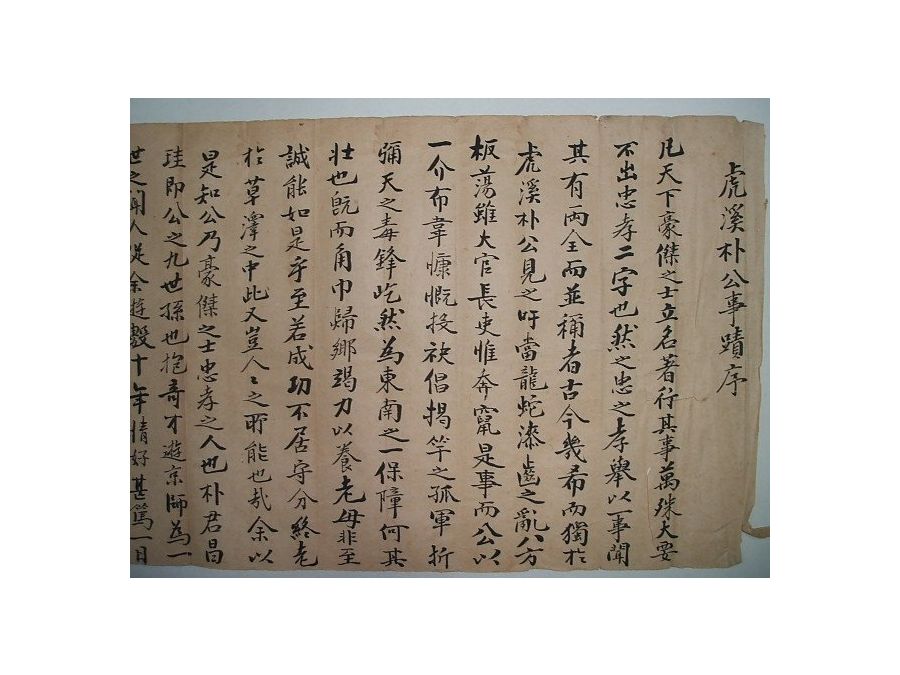 虎溪朴公事蹟序
凡天下豪傑之士立名著行其事萬殊大要
不出忠孝二字也然之忠之孝舉以一事聞
其有兩全而並稱者古今幾希而獨於
虎溪朴公見之吁當龍蛇漆齒之亂八方
板蕩雖大官長吏惟奔竄是事而公以
一介布韋慷慨投袂倡揭竿之孤軍折
彌天之毒鋒屹然為東南之一保障何其
壯也旣而角巾歸鄉竭力以養老母非至
誠能如是乎至若成功不居守分終老
於草澤之中此又豈人〻之所能也哉余以
是知公乃豪傑之士忠孝之人也朴君昌
珪即公之九世孫也抱奇才遊京師為一
世之聞人從余遊數十年情好甚篤一日